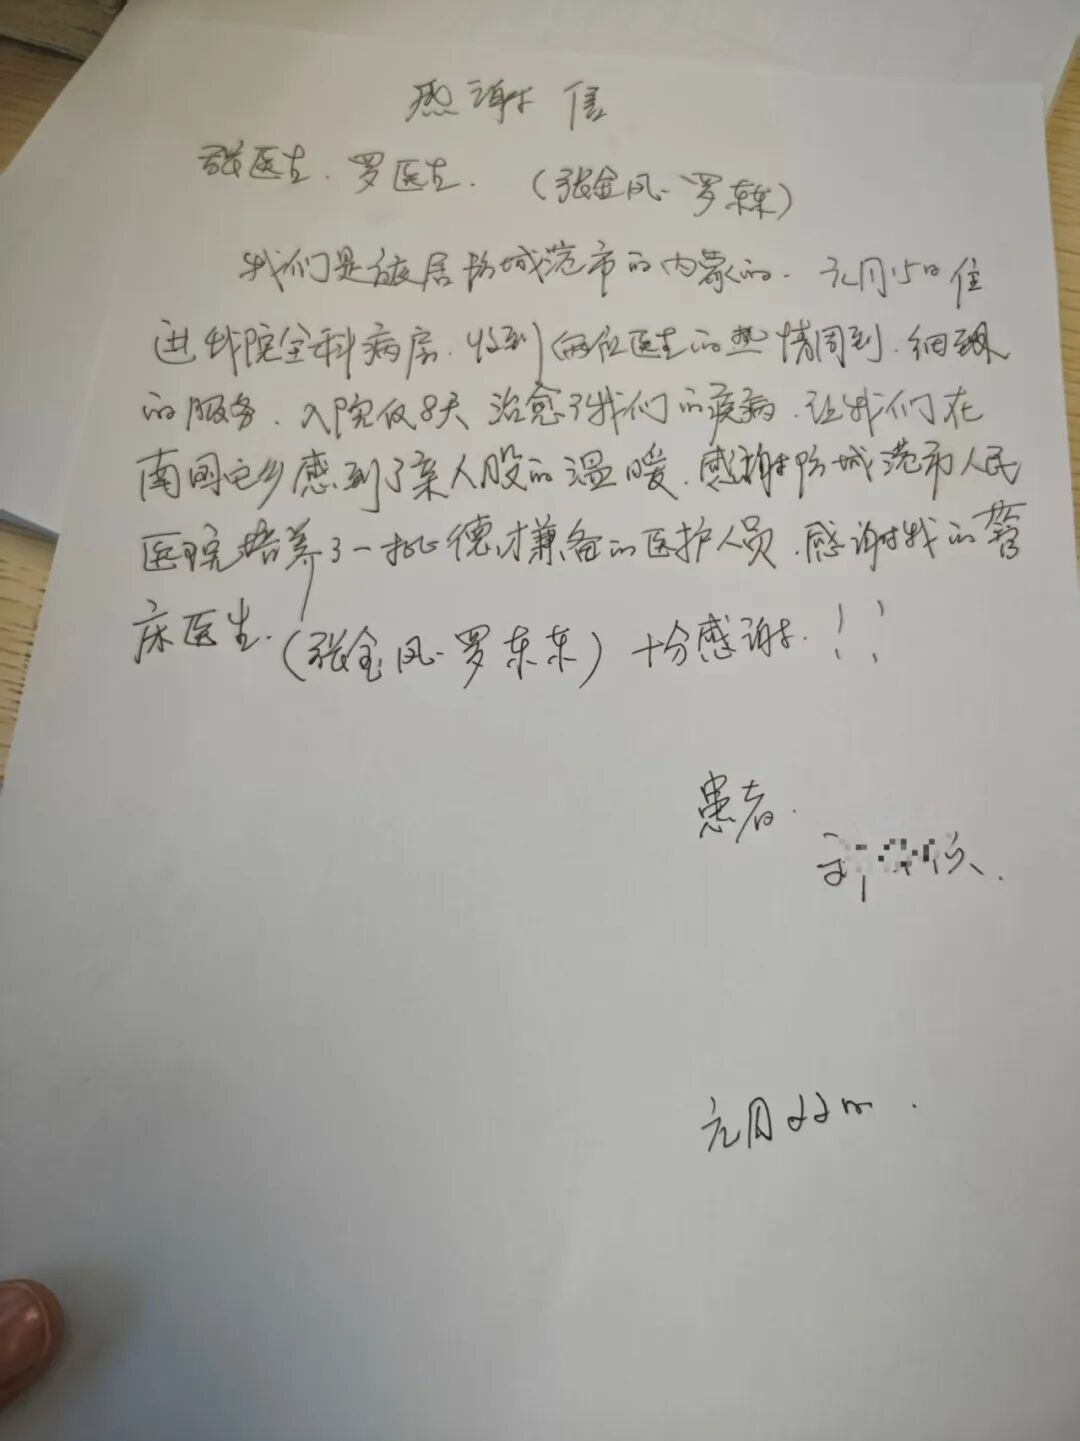 感谢信
张医生.罗医生.(张金凤.罗东东)
我们是旅居防城港市的内蒙人的.元月15日住
进我院全科病房.收到两位医生的热情周到.细致
的服务.入院仅8天治愈了我们的疾病.让我们在
南国它乡感到了亲人般的温暖.感谢防城港市人民
医院培养了一批德才兼备的医护人员.感谢我的管
床医生.(张金凤.罗东东)十分感谢.!!
患者.
元月22日.